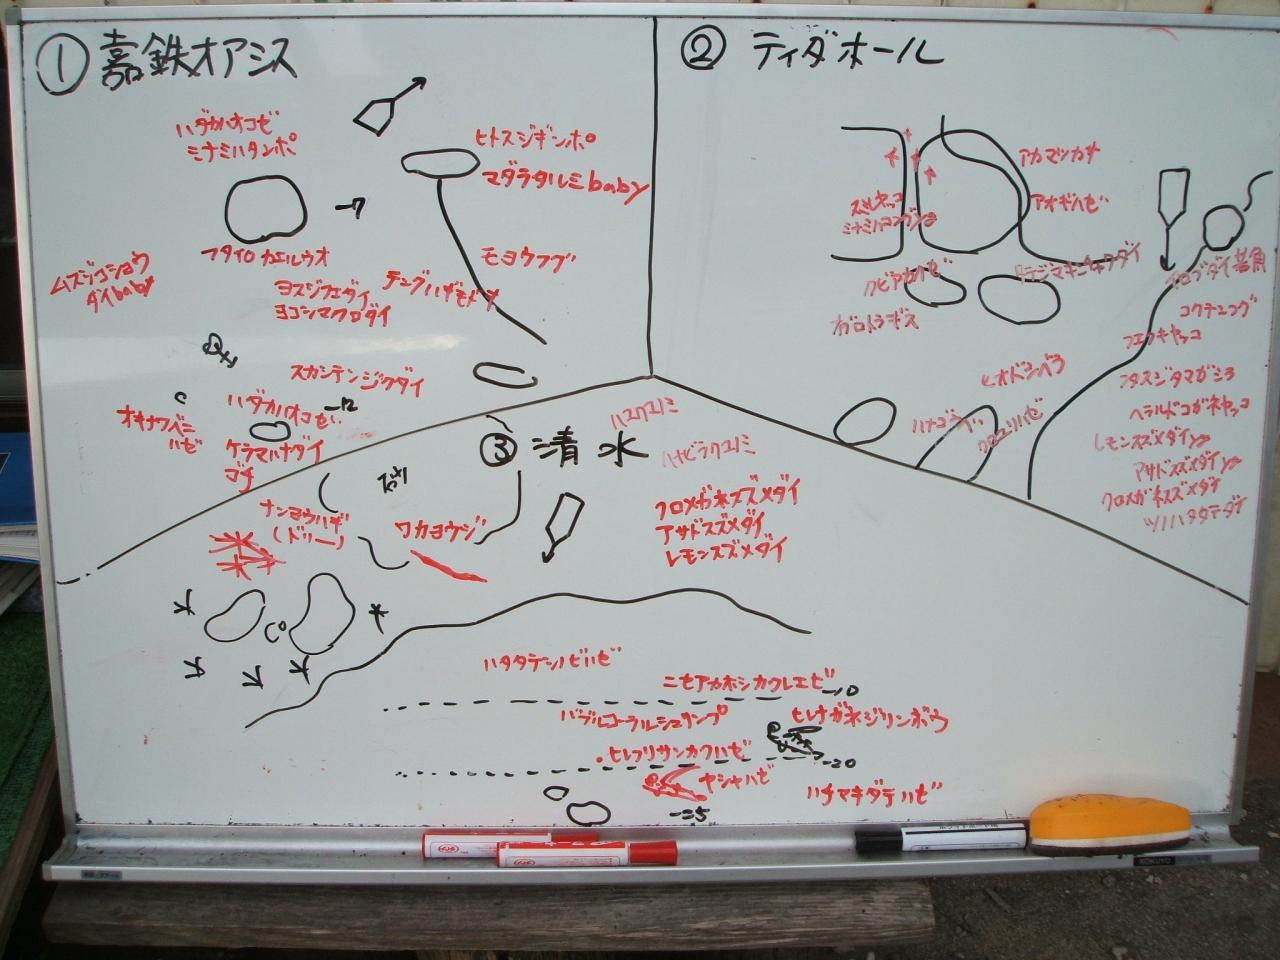 ① 嘉鉄オアシス
ハダカハオコゼ
ミナミハタンポ
ヒトスジギンポ
マダラタルミbaby
-7
フタイロカエルウオ
モヨウフグ
ムスジコショウ
ダイbaby
ヨスジフエダイ
ヨコシマクロダイ
スカシテンジクダイ
ハダカハオコゼ
-12
オキナワベニ
ハゼ
ケラマハナダイ
② ティダホール
アカマツカサ
アオギハゼ
スミレヤッコ
クビアカハゼ
コクテンフグ
フエフキヤッコ
フタスジタマガシラ
ヘラルドコガネヤッコ
レモンスズメダイ
アサドスズメダイ
クロメガネスズメダイ
ツノハタタテダイ
ヒオドシベラ
③ 清水
ハマクマノミ
ハナビラクマノミ
ナンヨウハギ
(ドリー)
ワカヨウジ
クロメガネスズメダイ
アサドスズメダイ
レモンスズメダイ
ハタタテシノビハゼ
ニセアカホシカクレエビ
-10
バブルコーラルシュリンプ
ヒレナガネジリンボウ
ヒレフリサンカクハゼ
-20
ヤシャハゼ
ハチマキダテハゼ
-25
KOKUYO